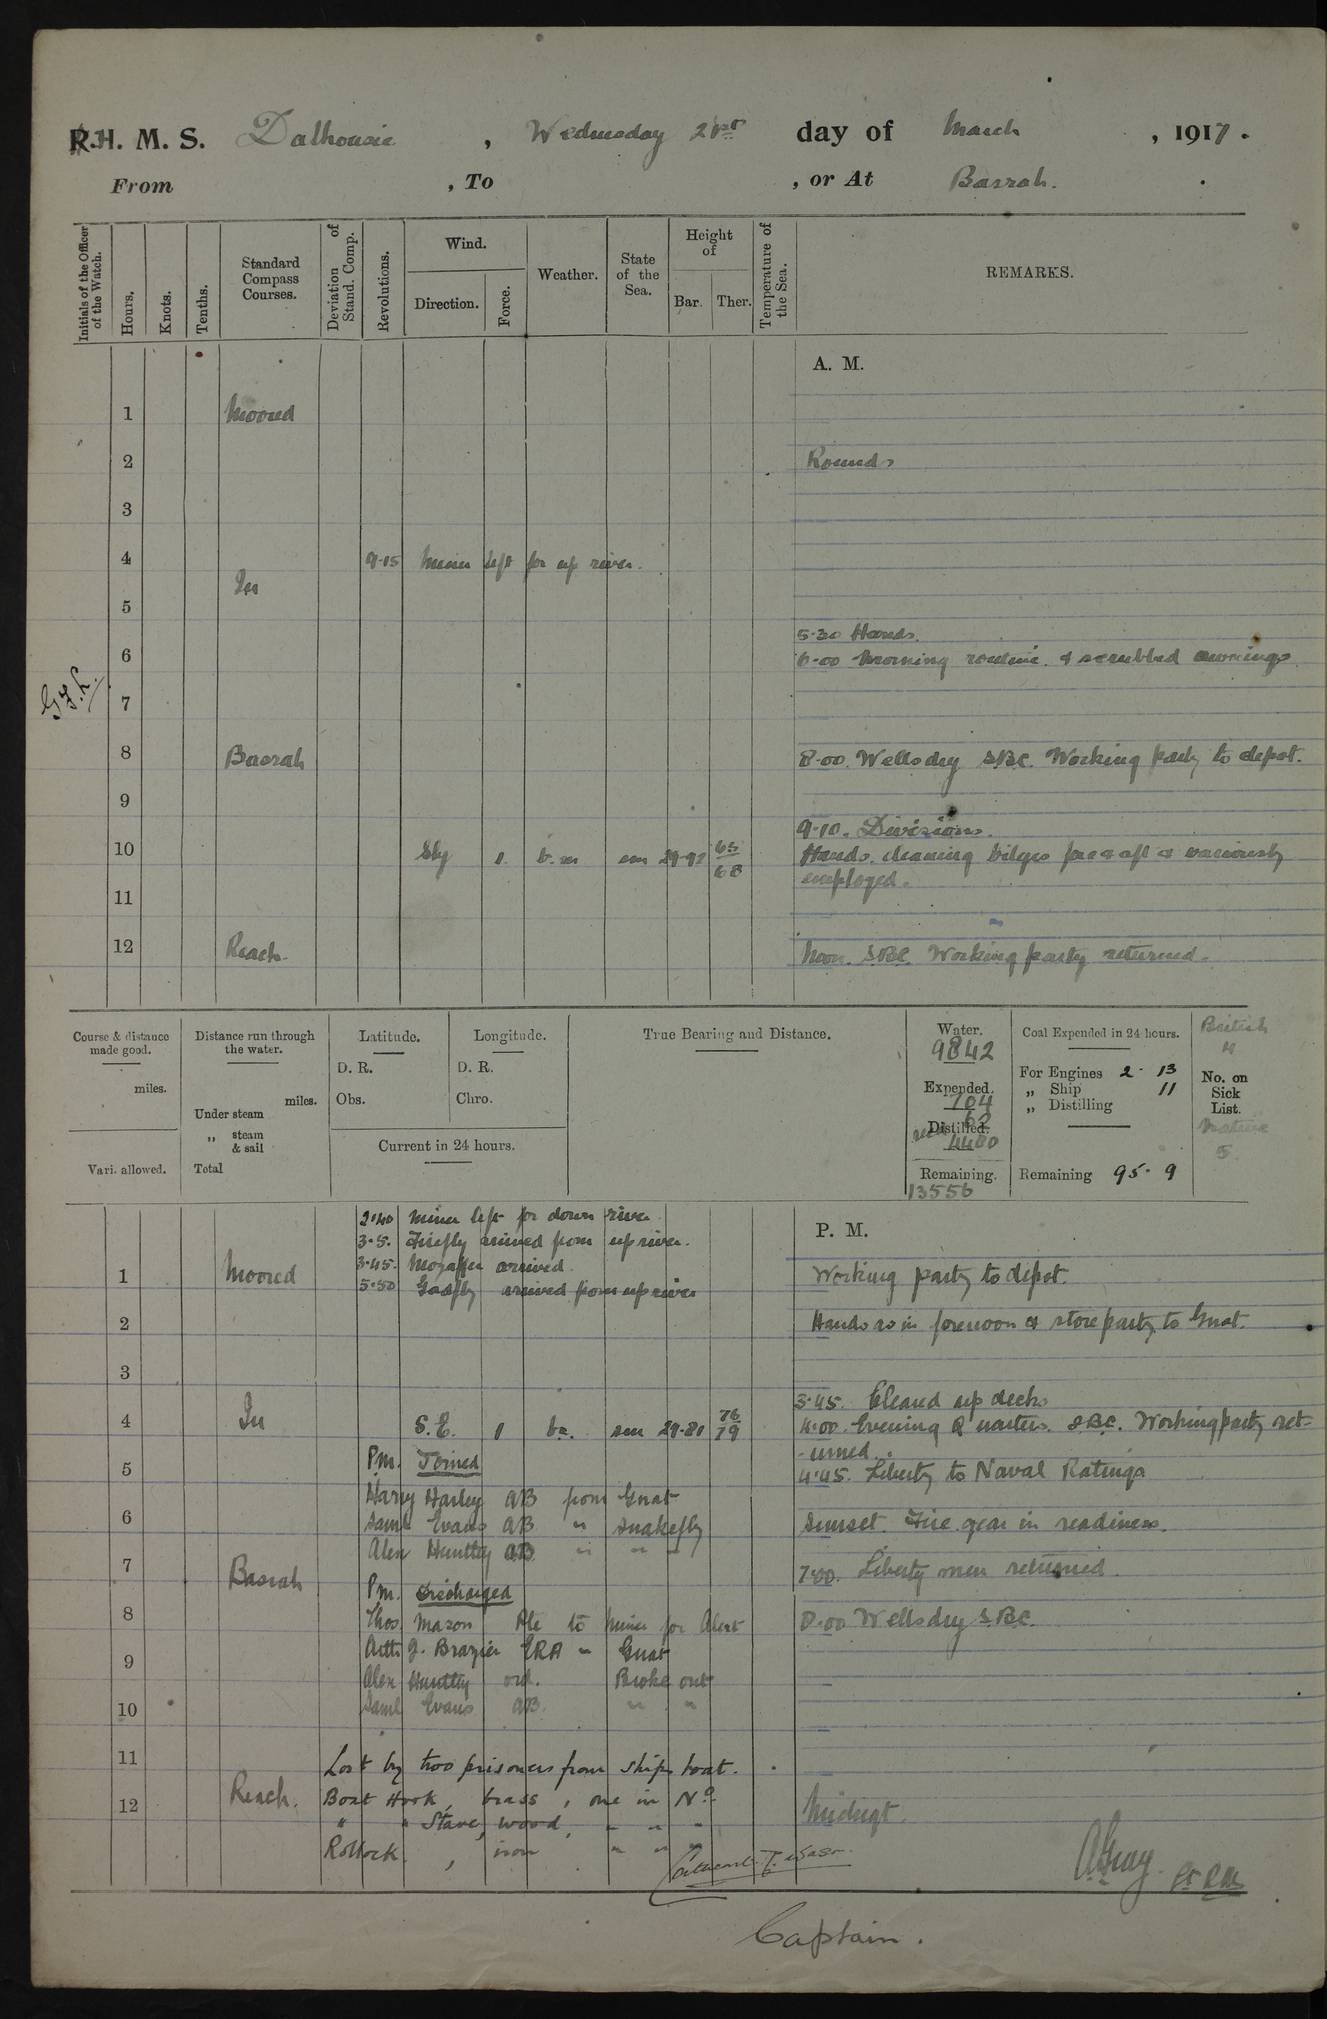 R.H. M. S. Dalhousie, Wednesday 21st day of March, 1917.
From , To , or At Basrah.
Initials of the Officer of the Watch.
Hours.
Knots.
Tenths.
Standard Compass Courses.
Deviation of Stand. Comp.
Revolutions.
Wind.
Direction.
Force.
Weather.
State of the Sea.
Height of
Bar.
Ther.
Temperature of the Sea.
REMARKS.
A. M.
1 Moored
2 Rounds
3
4 9.15 Miner left for up river.
In
5
5.30 Hands.
6 6.00 Morning routine & scrubbed awnings
7
8 Basrah 8.00. Wells dry SBC. Working party to depot.
9
9.10. Divisions.
10 1 b.m sm 29.92 65 Hands cleaning bilges fore & aft & variously
68 employed.
11
12 Reach. Noon. SBC. Working party returned.
Course & distance made good.
miles.
Vari. allowed.
Distance run through the water.
miles.
Under steam
„ steam & sail
Total
Latitude.
D. R.
Obs.
Longitude.
D. R.
Chro.
Current in 24 hours.
True Bearing and Distance.
Water.
9842
Expended.
704
62
Distilled.
4480
Remaining.
13556
Coal Expended in 24 hours.
For Engines 2 - 13
„ Ship 11
„ Distilling
Remaining 95 - 9
British
4
No. on Sick List.
Native
5
2.40 Miner left for down river.
3.5. Firefly arrived from up river. P. M.
3.45. Mozaffer arrived.
5.50 Gadfly arrived from up river
1 Moored Working party to depot.
2 Hands as in forenoon & store party to Gnat.
3
3.45. Cleared up decks
4 In S.E. 1 bc. sm 29.81 76 4.00. Evening Quarters. SBC. Working party ret-
79 -urned.
Pm. Joined
5 4.45. Liberty to Naval Ratings
Harry Harley AB from Gnat
6 Saml Evans AB " Snakefly Sunset. Fire gear in readiness.
Alex Huntley AB " " "
7 Basrah 7.00. Liberty men returned.
Pm. Discharged
8 Thos. Mason Pte to Miner for Alert 8.00 Wells dry SBC.
Arth. J. Brazier ERA " Gnat
9
Alex Huntley ord. Broke out
10 Saml Evans AB. " "
11 Lost by two prisoners from ships boat.
Reach. Boat Hook, brass, one in No.
12 " " Stave, wood, " " " Midngt.
Rollock, iron " " "
A Gray. Lt RIM
Captain.